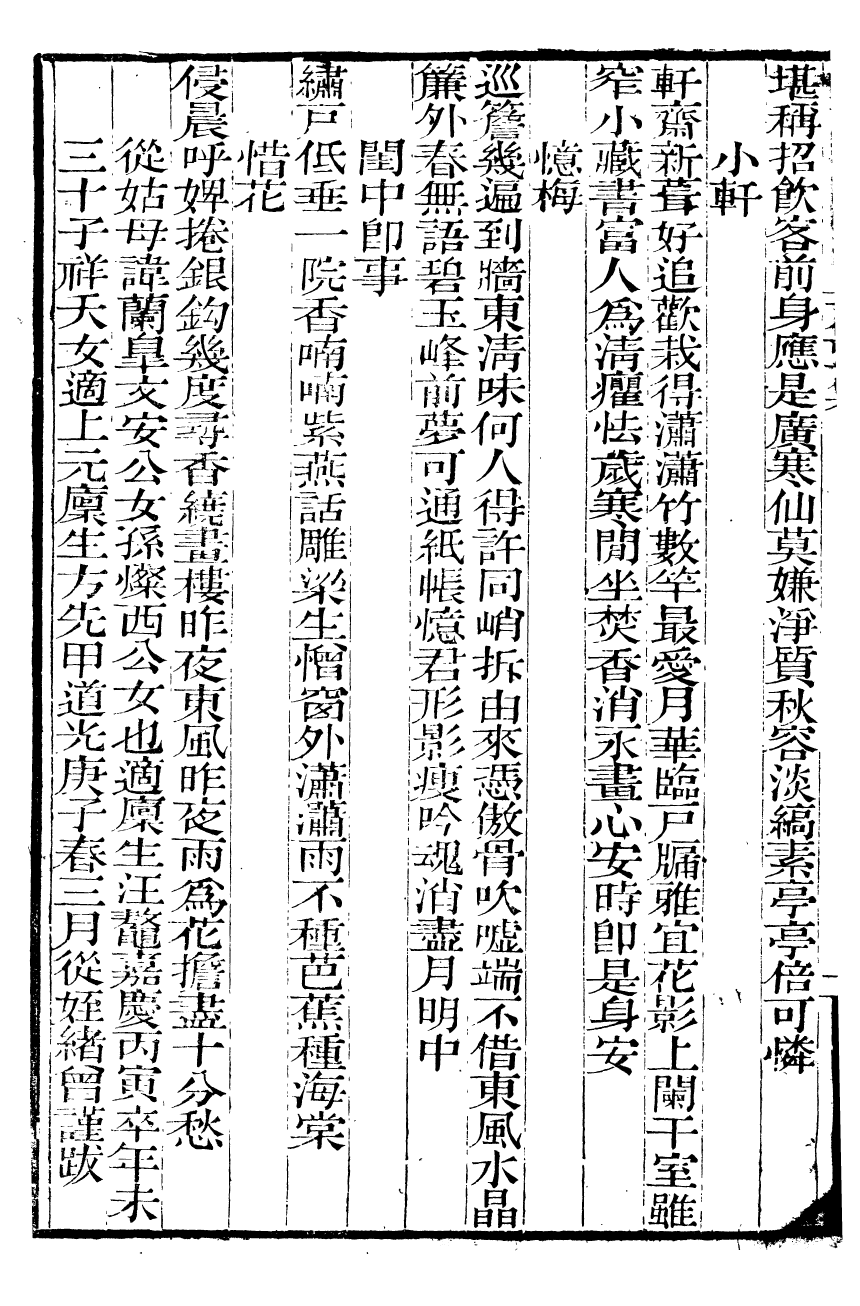 堪稱招飲客前身應是廣寒仙莫嫌淨質秋容淡縞素亭亭倍可憐
小軒
軒齋新葺好追歡栽得瀟瀟竹數竿最愛月華臨戸牖雅宜花影上闌干室雖
窄小藏書富人爲淸癯怯歲寒閒坐焚香消永晝心安時卽是身安
憶梅
巡簷幾遍到牆東淸味何人得許同峭拆由來憑傲骨吹噓端不借東風水晶
簾外春無語碧玉峰前夢可通紙帳憶君形影瘦吟魂消盡月明中
閨中卽事
繡戸低垂一院香喃喃紫燕話雕梁生憎窗外瀟瀟雨不種芭蕉種海棠
惜花
侵晨呼婢捲銀鈎幾度尋香繞畫樓昨夜東風昨夜雨爲花擔盡十分愁
從姑母諱蘭皐文安公女孫燦西公女也適廩生汪鼇嘉慶丙寅卒年未
三十子祥天女適上元廩生方先甲道光庚子春三月從姪緒曾謹跋